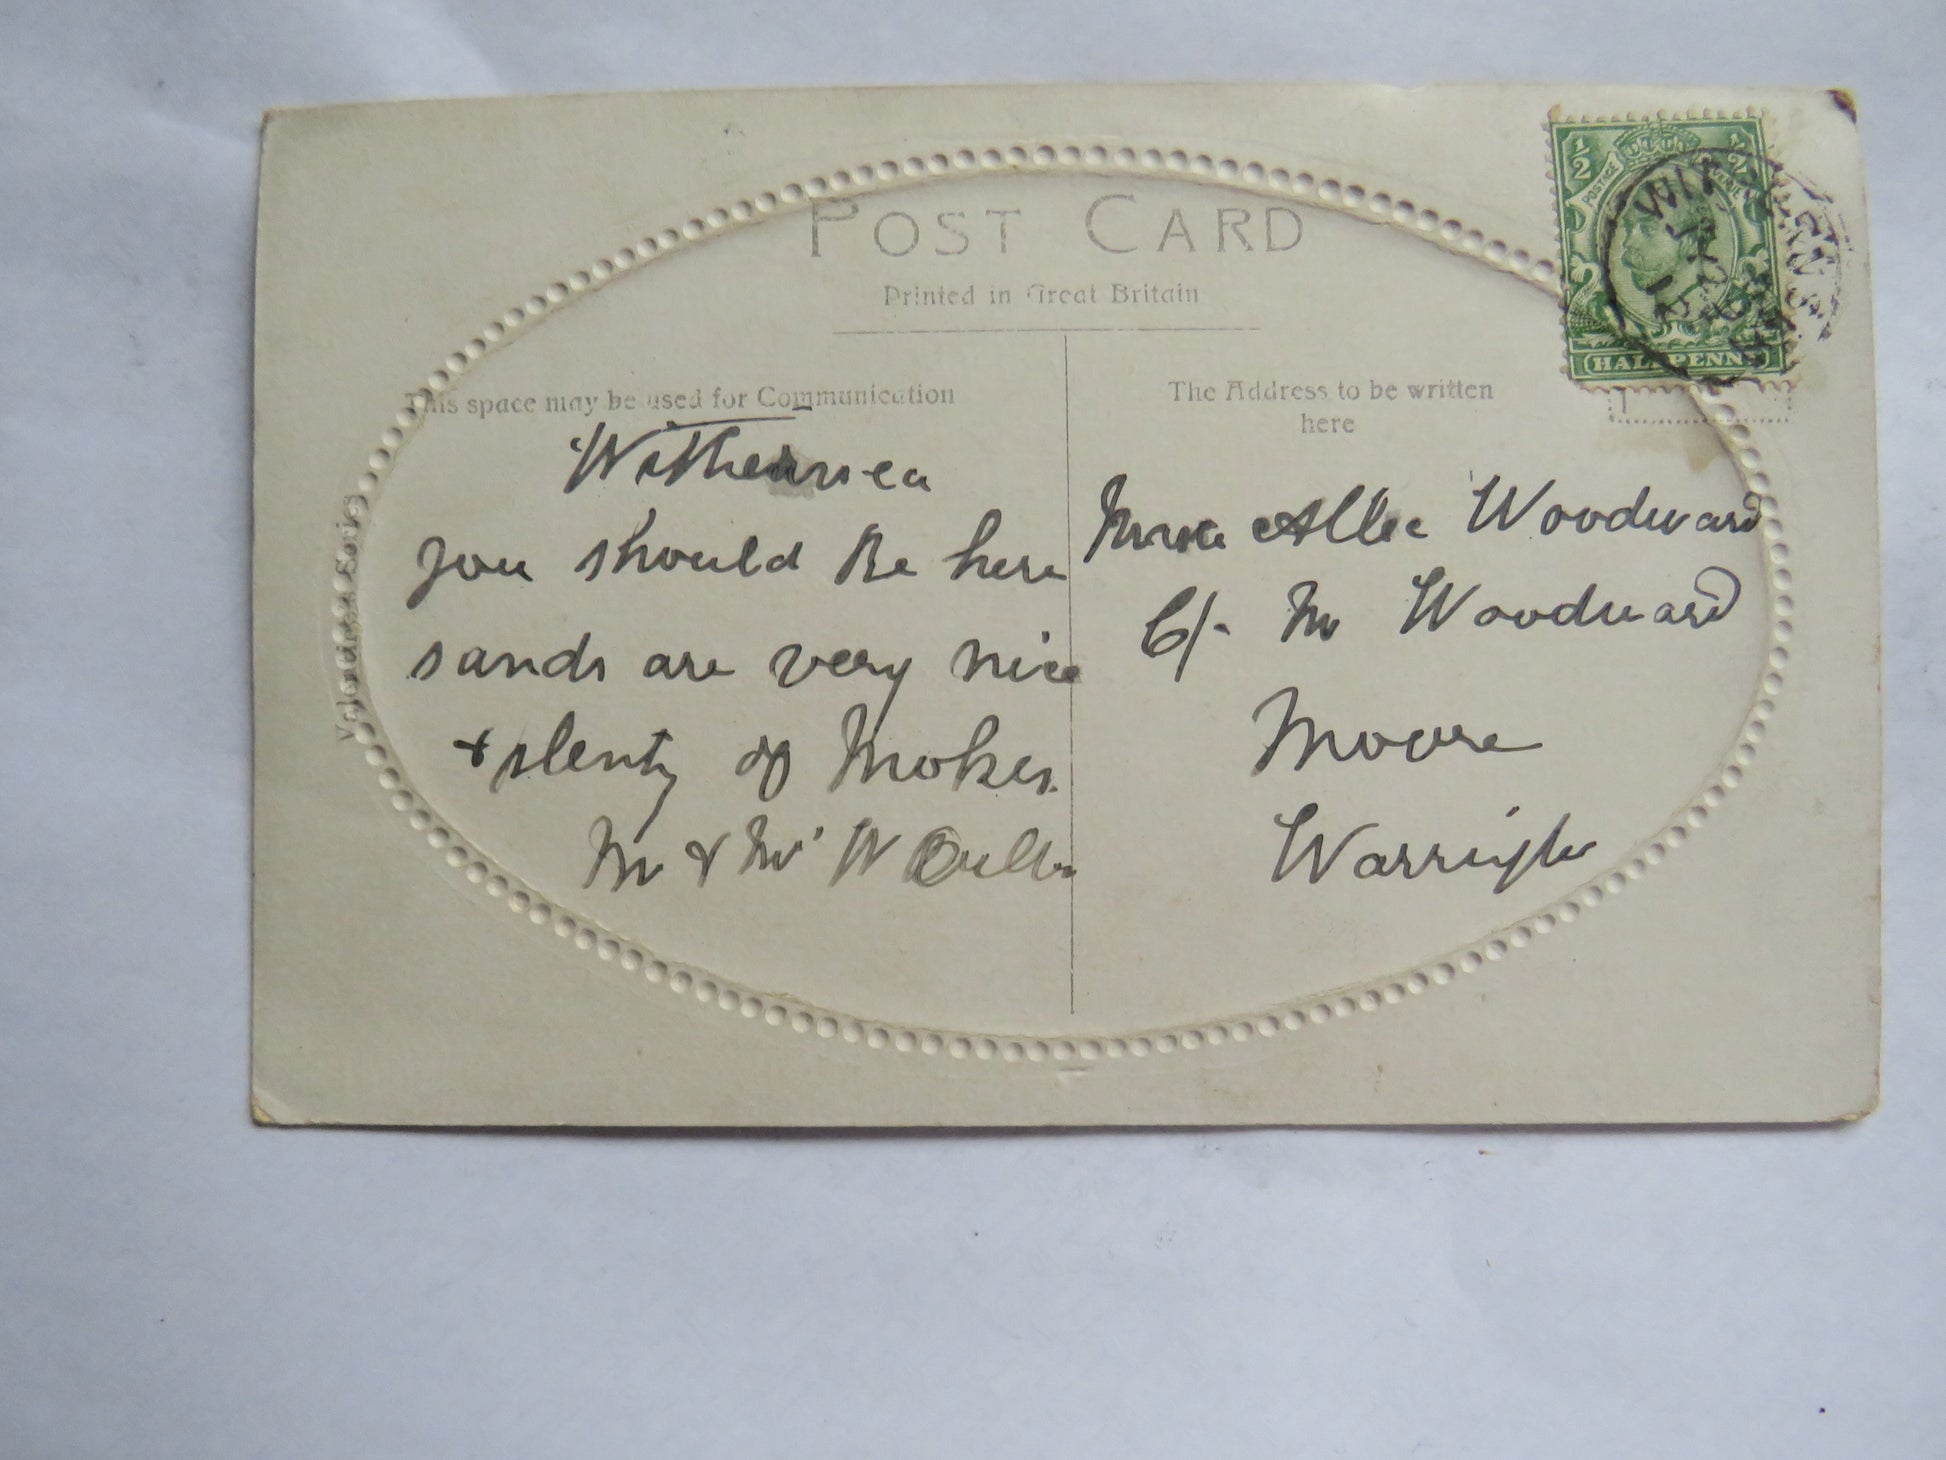 POST CARD
Printed in Great Britain
This space may be used for Communication
The Address to be written
here
Withernsea
you should Be here
sands are very nice
& plenty of Mokes.
M & Mrs W
Allce Woodward
C/- Mr Woodward
Moore
Valentines Series
POSTAGE
1/2
1/2
HALFPENNY